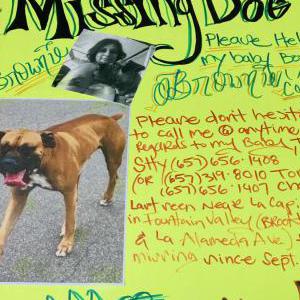 Missing Dog
Brownie
Please Hel
my baby Bo
Brownie
co
Please don't hesita
to call me @ anytime
regards to my Baby
Stty (657) 656-1408
(OR (657) 319-8010 Tom
(657) 656-1407 Ch
Last seen Near La Capi
in Fountain Valley (Brook
& La Alameda Ave)
missing since Sept.